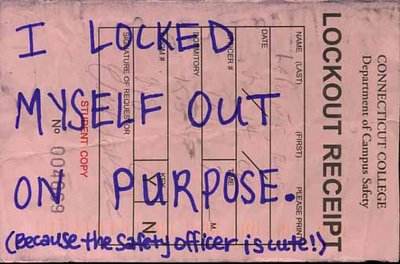 I LOCKED
MYSELF OUT
ON PURPOSE.
(Because the safety officer is cute!)
CONNECTICUT COLLEGE
Department of Campus Safety
LOCKOUT RECEIPT
NAME (LAST) (FIRST) PLEASE PRINT
DATE
DORMITORY
SIGNATURE OF REQUESTOR
STUDENT COPY
No